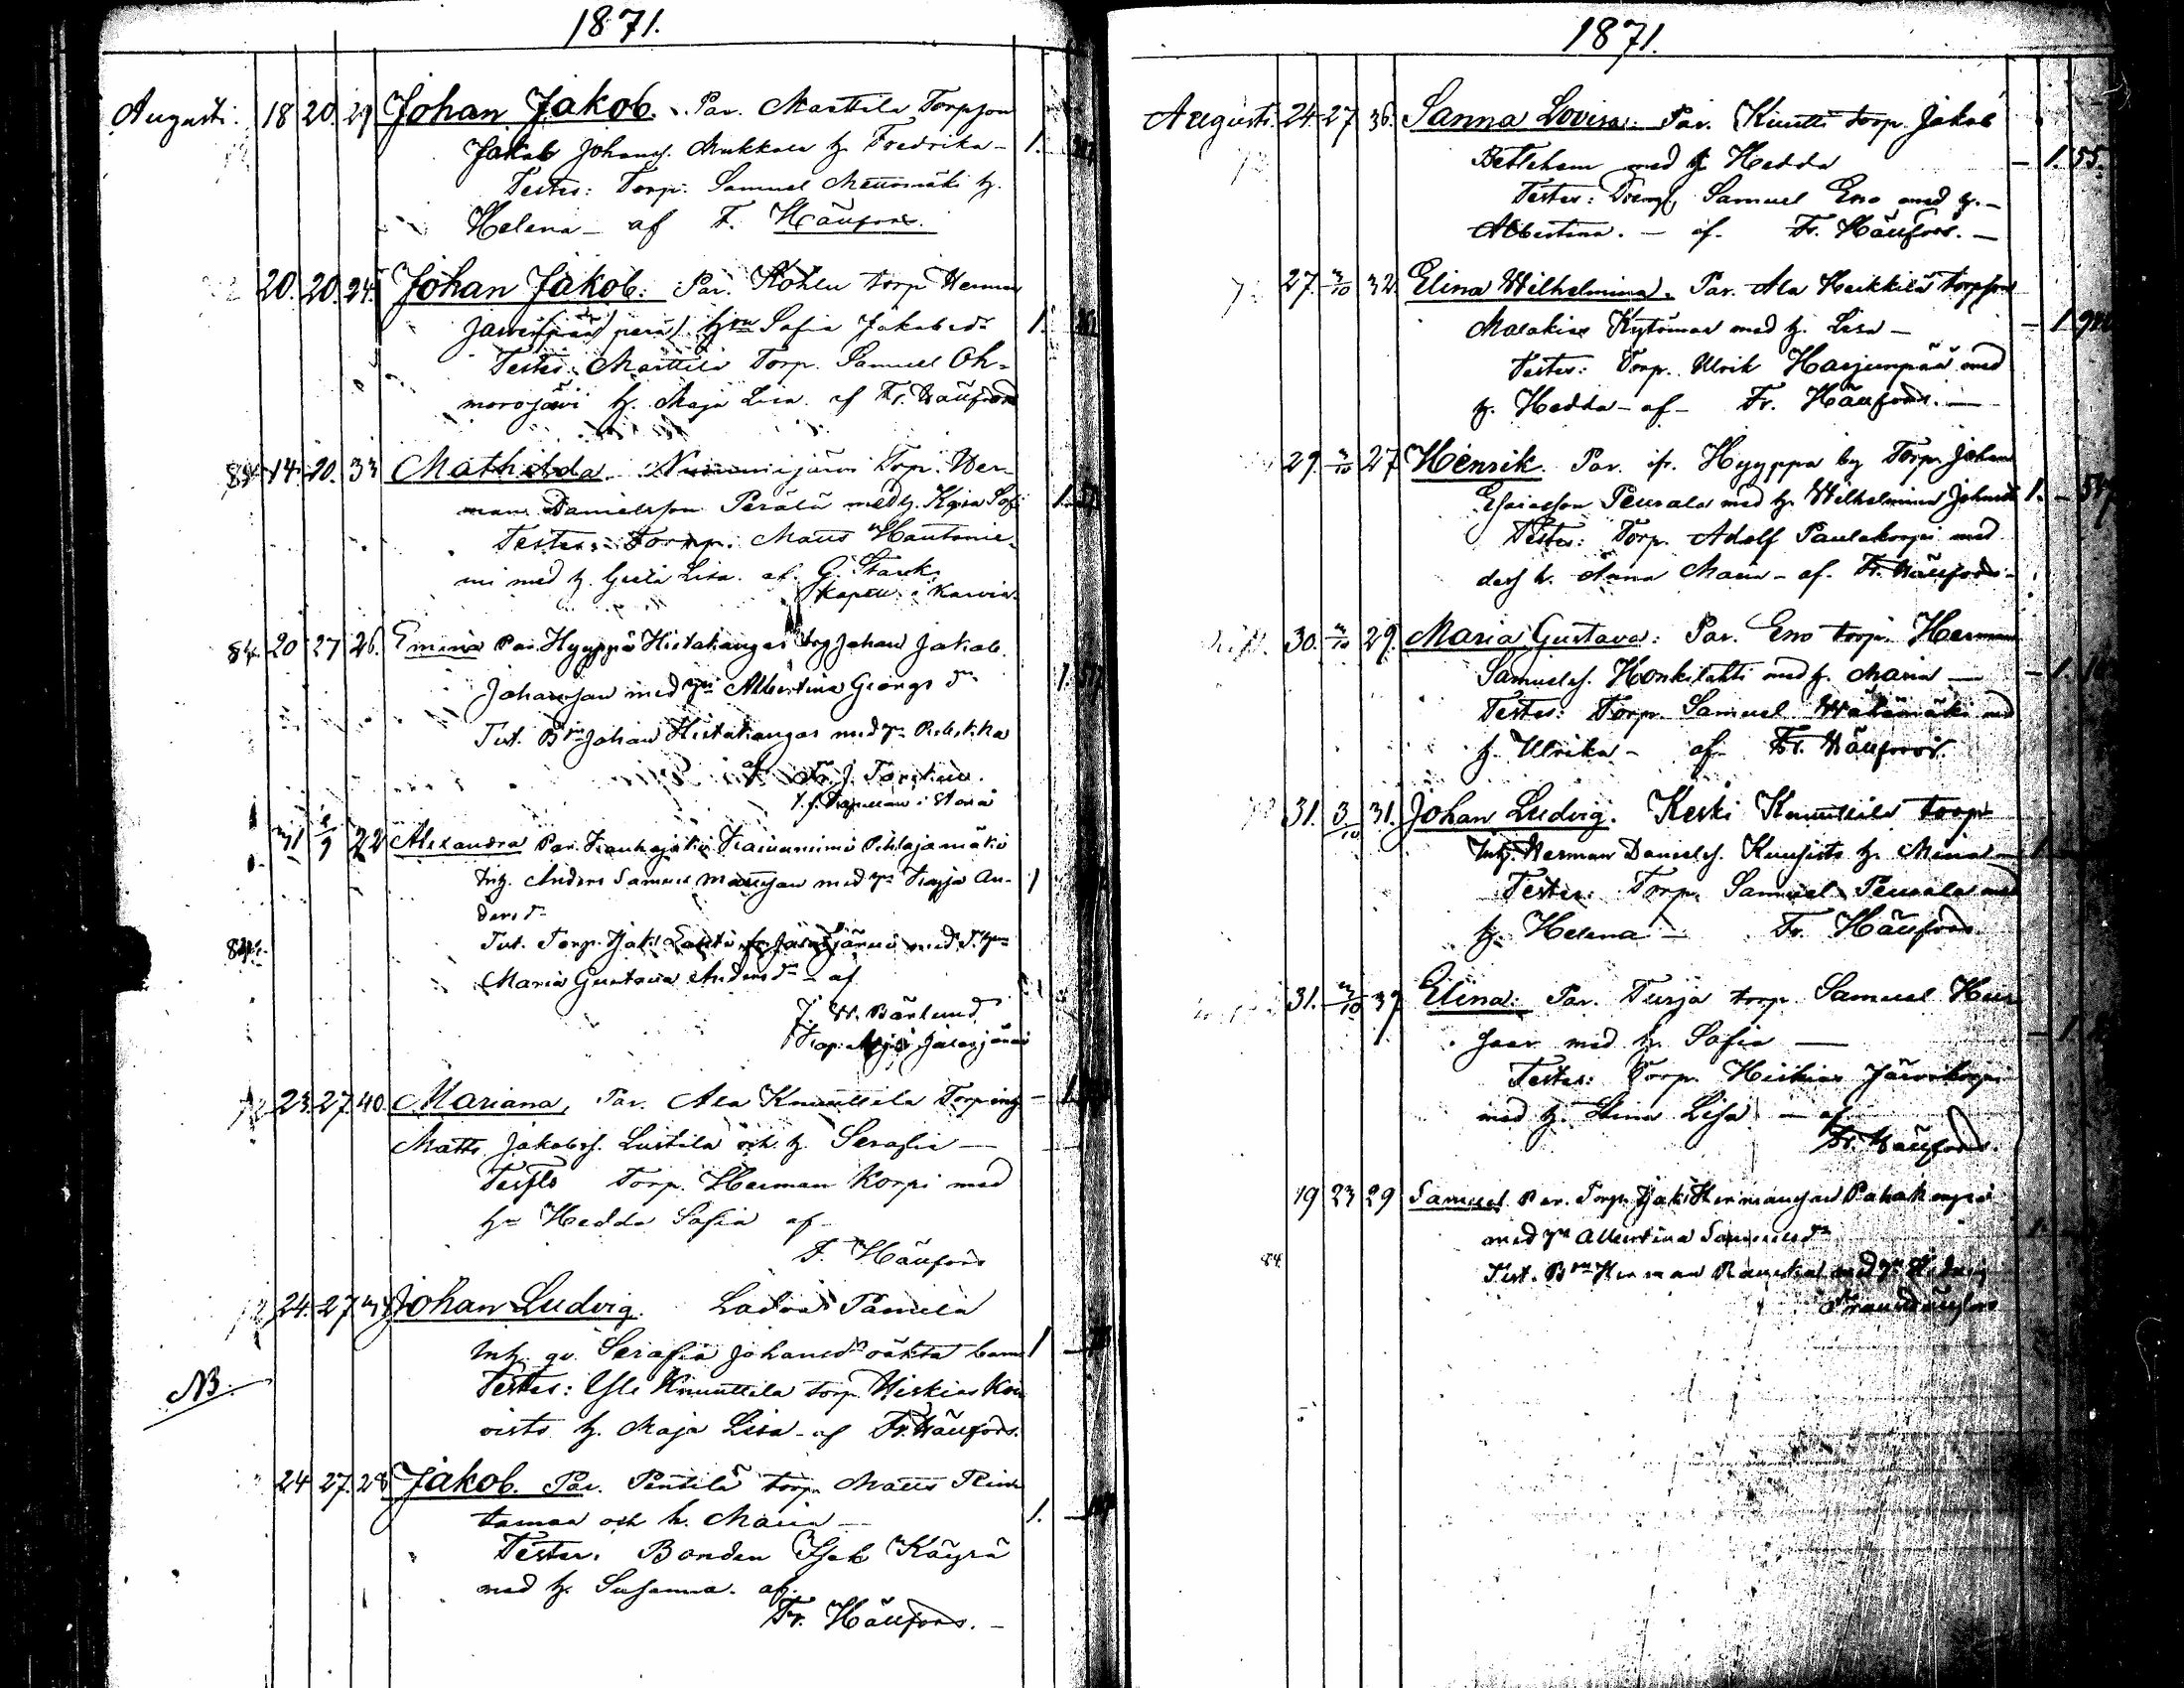 1871.
Augusti. 18 20. 29 Johan Jakob. Par. Marttila Torpson
Jakob Johans. Mukkala h. Fredrika - 1.
Testes: Torp. Samuel Mettomäki h.
Helena - af F. Häufors.
20. 20. 24. Johan Jakob: Par. Kohlu torp Herman
Jervenpää perä h:ru Sofia Jakobsdr 1.
Testes: Marttila Torp. Samuel Oh-
morojärvi h. Maja Lisa af Fr. Häufors
84. 14. 20. 33 Mathilda Nummijärvi Torp. Her-
man Danielsson Perälä med h. Kajsa Sofi 1.
Testes: Torp. Matts Hautanie-
mi med h. Greta Lisa. af. G. Starck,
Kapell. i Karvia.
84. 20 27 26. Emma Par. Hyyppä Hietakangas torp Johan Jakob
Johansson med hu Albertina Georgs dr 1.
Test. Bdn Johan Hietakangas med hu
af Fr. J.
v. f. Kapellan i Storå
31 1/9 22 Alexandra Par. Kauhajoki Kainunimi Pihlajamäki
Inh. Anders Samuel Mattsson med hu Kajsa An- 1
dersdr
84. Test. Torp. Isak med d. hu
Maria Gustava Andersdr - af
J. W. Bärlund
Kap. Jalasjärvi
23. 27. 40. Mariana, Par. Ala Knuuttila Torp inh - 1.
Matts Jakobss. Lustila och h. Serafia -
Testes Torp. Herman Korpi med
hu Hedda Sofia af -
F. Häufors
24. 27. Johan Ludvig. Ladva Pamela
Inh. qv. Serafia Johansdr oäkta barn 1
NB. Testes: Yli Knuuttila torp. Hiskias Koi
visto h. Maja Lisa - af Fr. Häufors.
24 27. 28 Jakob. Par. Pentilä torp. Matts Rin
tamaa och h. Maria - 1.
Testes. Bonden Isak Käyrä
med h. Susanna. af.
Fr. Häufors. -
1871.
Augusti. 24. 27 36. Sanna Lovisa: Par. Knutti torp. Jakob
Betlehem med h Hedda - 1. 55.
Testes: Dreng. Samuel Eno med h. -
Albertina. - af. Fr. Häufors. -
27. 3/10 32. Elina Wilhelmina. Par. Ala Heikkilä torpson
Malakias Kytömaa med h. Lisa - - 1
Testes: Torp. Ulrik Harjunpää med
h. Hedda - af - Fr. Häufors. -
29. 3/10 27 Henrik. Par. fr. Hyyppä by Torp. Johan
Esaiasson Peurala med h. Wilhelmina Johansdr 1.
Testes: Torp. Adolf Paulakorpi med
dess h. Anna Maria - af. Fr. Häufors -
30. 3/10 29. Maria Gustava: Par. Eno torp. Herman
Samuelss. Honkilahti med h. Maria - - 1.
Testes: Torp. Samuel Wälimäki med
h. Ulrika - af Fr. Häufors.
31. 3/10 31. Johan Ludvig. Keski Knuuttila torp
Inh. Herman Danielss. Kuusisto h. Maria 1
Testes: Torp. Samuel Peurala med
h. Helena - Fr. Häufors.
31. 3/10 37 Elina: Par. Turja torp. Samuel
med h. Sofia - - 1
Testes: Torp. Hiskias Järvikorpi
med h. Stina Lisa - af
Fr. Häufors.
19 23 29 Samuel Par. Torp. Isak Hermansson
84. med hu Albertina Samuelsdr 1
Test. Bdn Herman med hu Hedvig
Frans Häufors